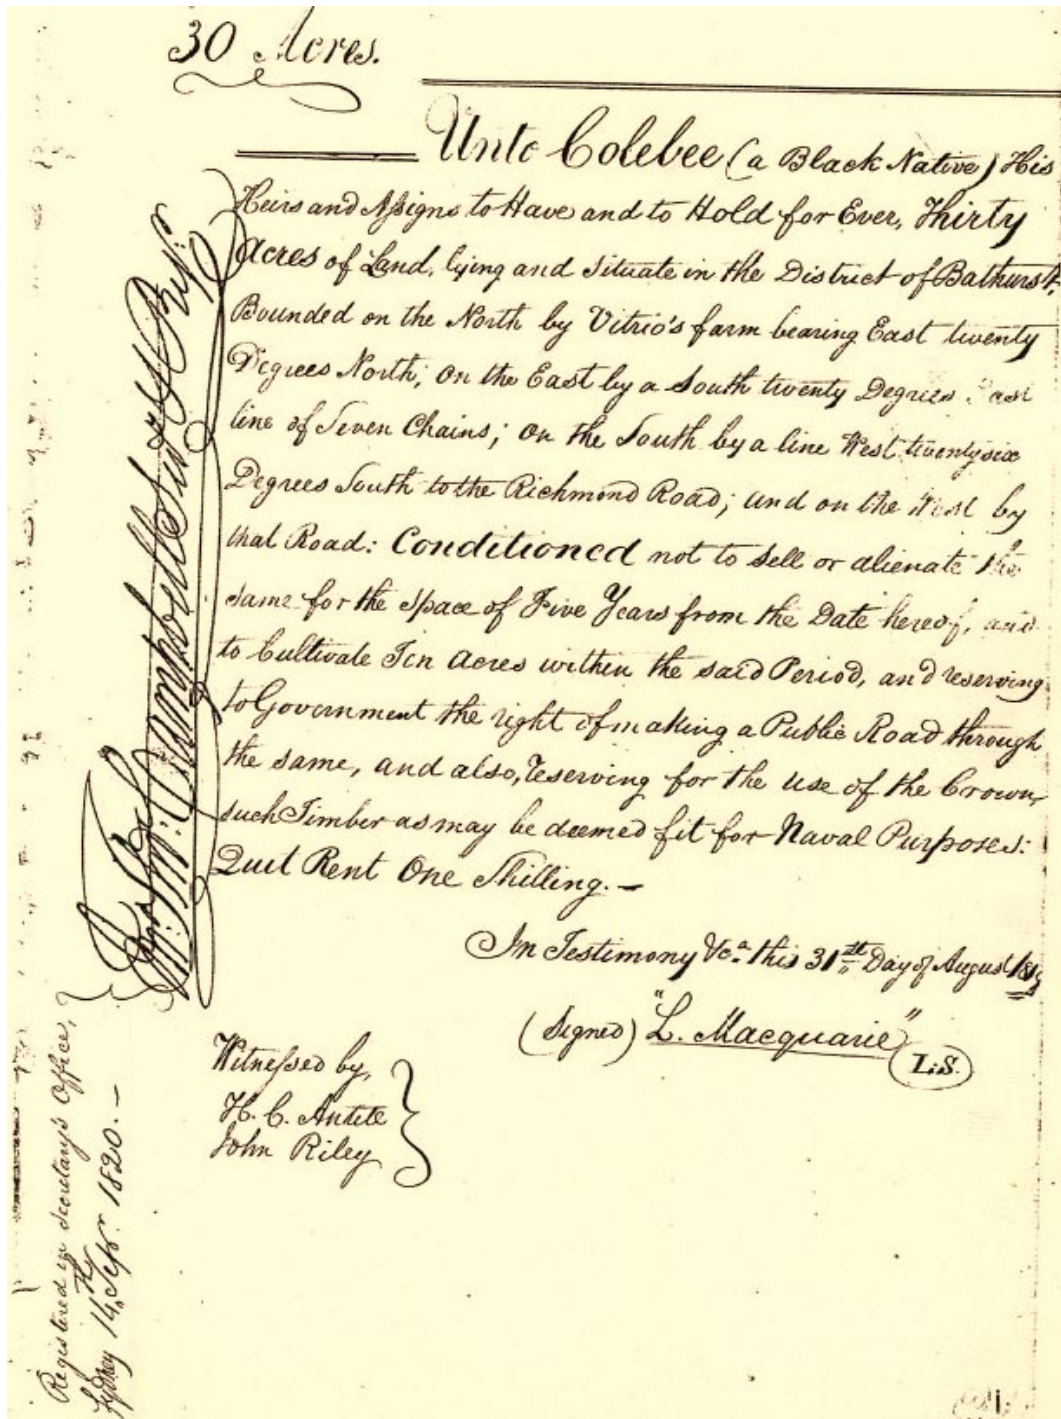 30 Acres.
Unto Colebee (a Black Native) His
Heirs and Assigns to Have and to Hold for Ever, Thirty
Acres of Land, lying and situate in the District of Bathurst,
Bounded on the North by Vitrio's farm bearing East twenty
Degrees North; on the East by a South twenty Degrees East
line of Seven Chains; on the South by a line West twenty six
Degrees South to the Richmond Road; and on the West by
that Road: Conditioned not to sell or alienate the
same for the space of Five Years from the Date hereof, and
to Cultivate Ten Acres within the said Period, and reserving
to Government the right of making a Public Road through
the same, and also, reserving for the use of the Crown,
such Timber as may be deemed fit for Naval Purposes:
Quit Rent One Shilling. —
In Testimony &ca. this 31st Day of August 1819
(Signed) "L. Macquarie"
L.S.
Witnessed by,
H. C. Antill
John Riley
Registered in Secretary's Office,
Sydney 14th Sepr. 1820. —
Campbell Secy.